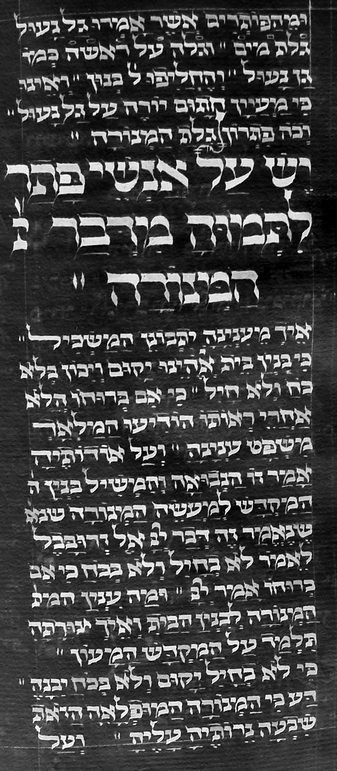 ומהפותרים אשר אמרו גל נעול
גלת מים וגלה על ראשה כמו
גן נעול והחליפו ל בנון וראיתו
כי מעין חתום יורה על גל נעול
וזה פתרון גלת המנורה
יש על אנשי פתר
לתמוה מדבר
המנורה
איך מענינה יתבונן המשכיל
כי בנין בית אלהינו יקום ויכון בלא
כח ולא חיל כי אם ברוחו הלא
אחרי ראותו הודיעו המלאך
משפט ענינה ועל אודותיה
אמר זו הנבואה והמשיל בנין ה
המקדש למעשה המנורה
שנאמר זה דבר יי אל זרובבל
לאמר לא בחיל ולא בכח כי אם
ברוחי אמר יי ומה ענין
המנורה לבנין הבית ואיך
תלמד על המקדש
כי לא בחיל יקום ולא בכח יבנה
דע כי המנורה המופלאה הזאת
שבעה נרותיה עליה ועל